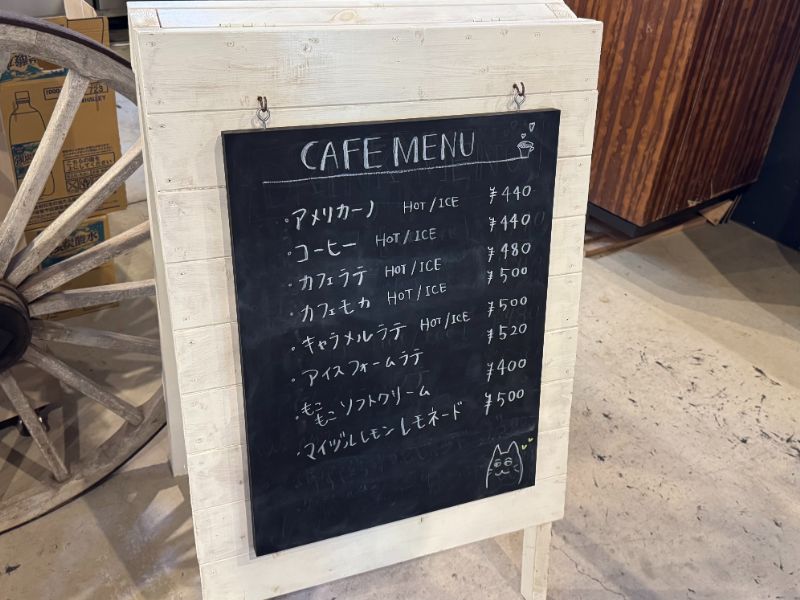 CAFE MENU
・アメリカーノ HOT/ICE ¥440
・コーヒー HOT/ICE ¥440
・カフェラテ HOT/ICE ¥480
・カフェモカ HOT/ICE ¥500
・キャラメルラテ HOT/ICE ¥500
・アイスフォームラテ ¥520
・もこもこソフトクリーム ¥400
・マイヅルレモンレモネード ¥500